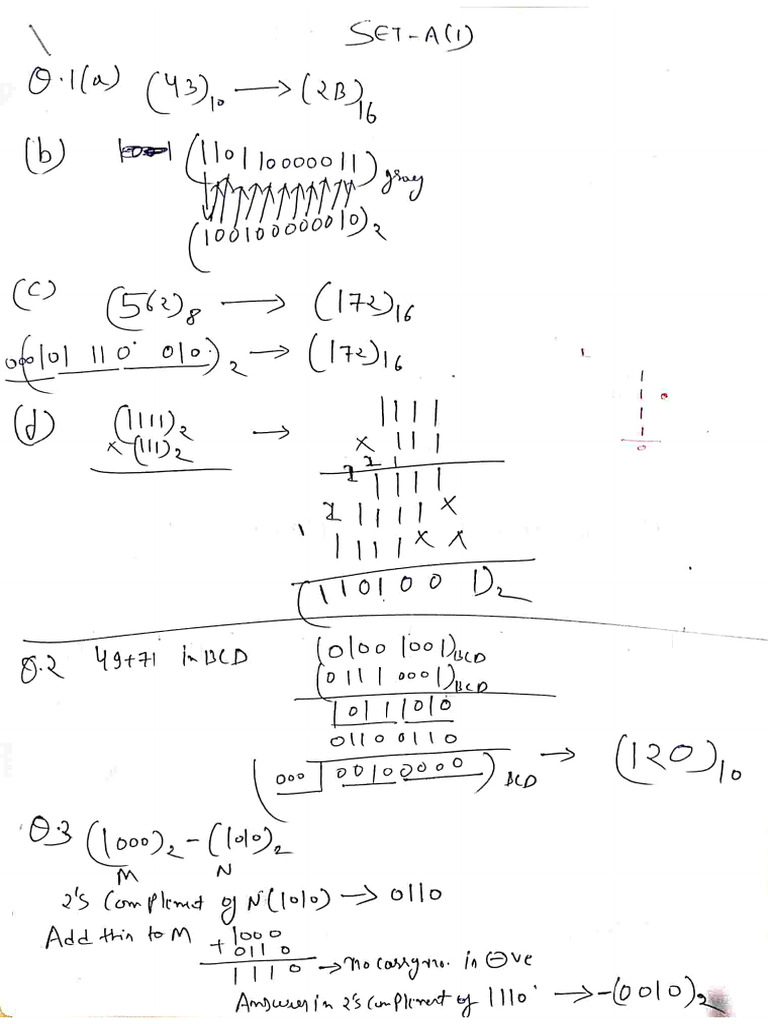 SET-A(1)
Q.1(a) (43)10 → (2B)16
(b) (110110000011)gray
(100100000010)2
(c) (562)8 → (172)16
000(101 110 010)2 → (172)16
(d) (1111)2 → 1111
× (111)2 × 111
1 1 1
1111
1 1111 ×
1111 × ×
(1101001)2
Q.2 49+71 in BCD (0100 1001)BCD
(0111 0001)BCD
1011 1010
0110 0110
(000 1 0010 0000)BCD → (120)10
Q.3 (1000)2 - (1010)2
M N
2's Complement of N(1010) → 0110
Add this to M 1000
+ 0110
1110 → no carry no. is ⊖ve
Answer is 2's complement of 1110 → -(0010)2